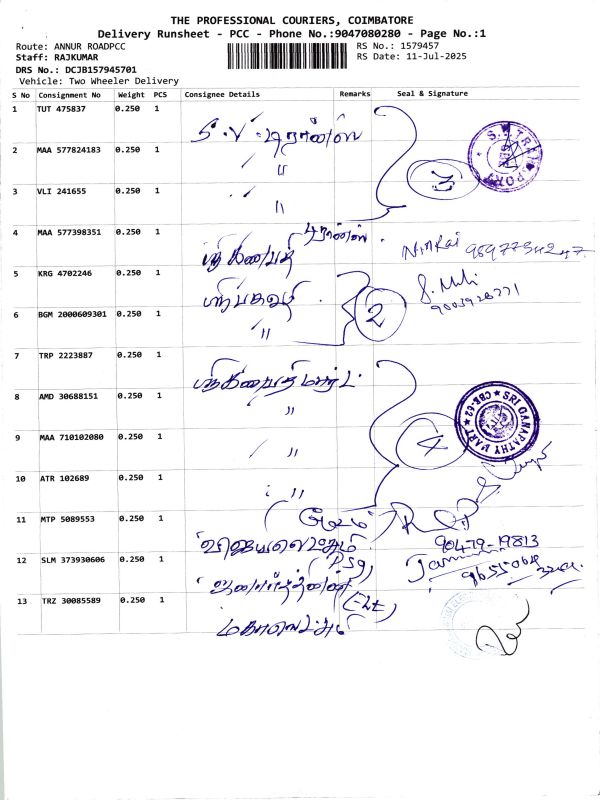 THE PROFESSIONAL COURIERS, COIMBATORE
Delivery Runsheet - PCC - Phone No.:9047080280 - Page No.:1
Route: ANNUR ROADPCC
RS No.: 1579457
Staff: RAJKUMAR
RS Date: 11-Jul-2025
DRS No.: DCJB157945701
Vehicle: Two Wheeler Delivery
S No Consignment No Weight PCS Consignee Details Remarks Seal & Signature
1 TUT 475837 0.250 1
S.V. டிரான்ஸ்
2 MAA 577824183 0.250 1
"
3 VLI 241655 0.250 1
"
3
S.V. TRANSPORT
4 MAA 577398351 0.250 1
டிரான்ஸ்.
ஸ்ரீ கணபதி
5 KRG 4702246 0.250 1
9003928771
6 BGM 2000609301 0.250 1
"
2
7 TRP 2223887 0.250 1
ஸ்ரீ கணபதி மார்ட்
8 AMD 30688151 0.250 1
"
9 MAA 710102080 0.250 1
"
4
SRI GANAPATHY MART CBE-62
10 ATR 102689 0.250 1
"
11 MTP 5089553 0.250 1
90479-19813
12 SLM 373930606 0.250 1
(PSG)
13 TRZ 30085589 0.250 1
மகாலெட்சுமி